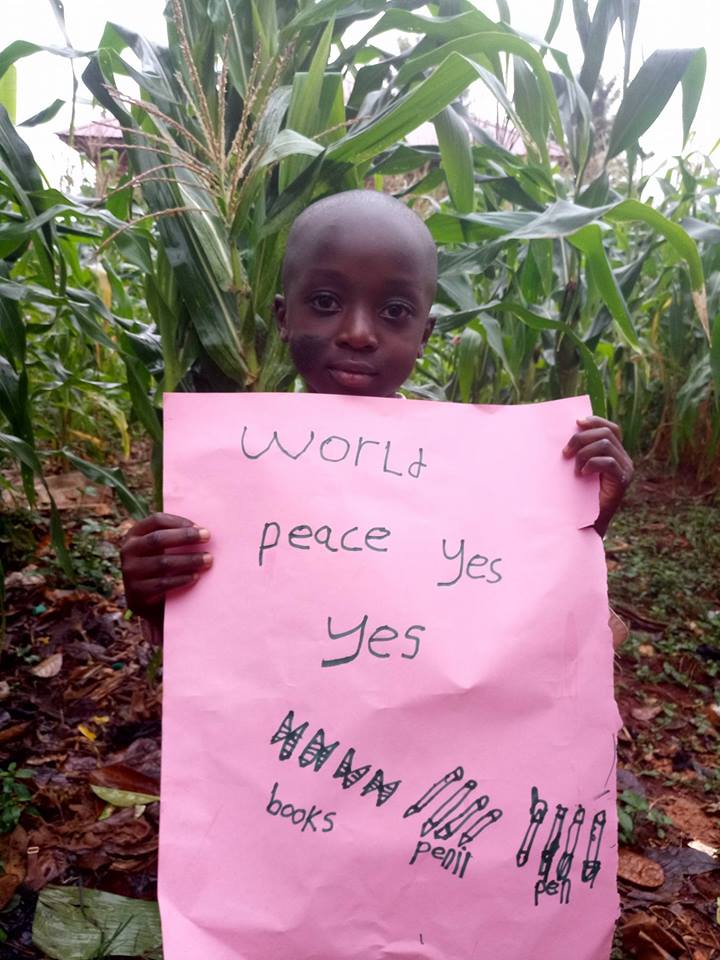 World
peace yes
yes
books
penil
pen